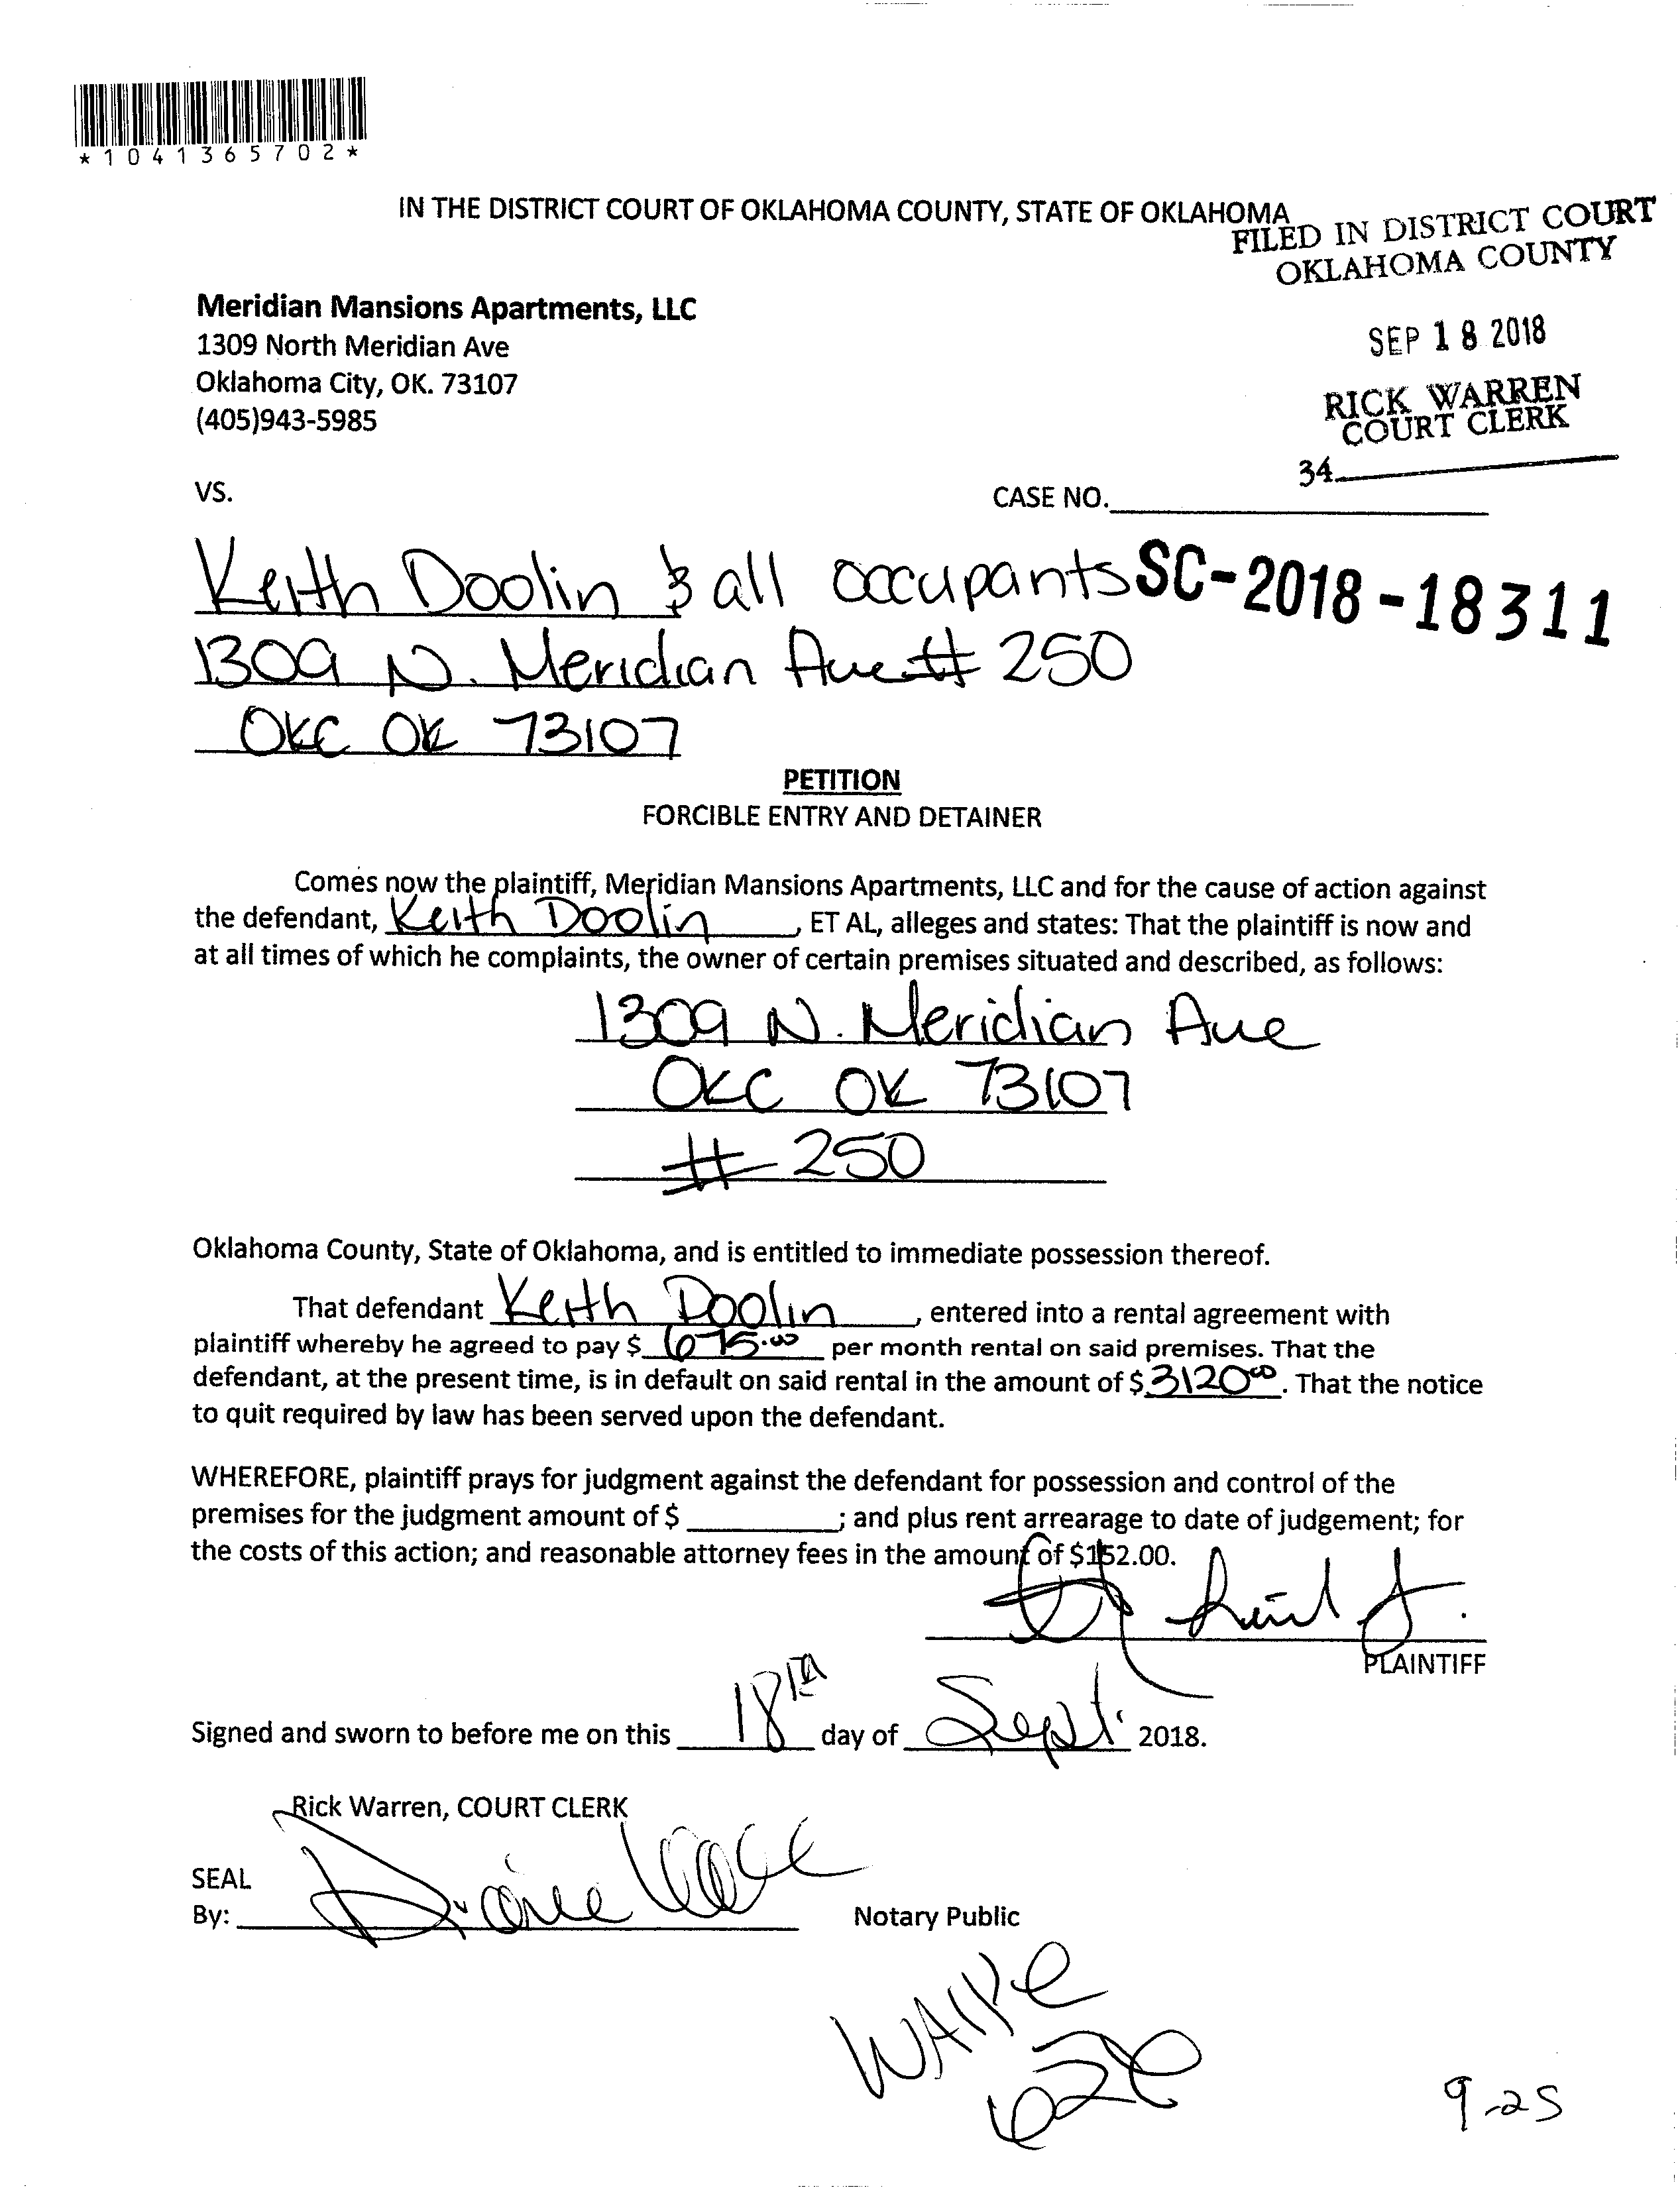 *1041365702*
IN THE DISTRICT COURT OF OKLAHOMA COUNTY, STATE OF OKLAHOMA
FILED IN DISTRICT COURT
OKLAHOMA COUNTY
Meridian Mansions Apartments, LLC
1309 North Meridian Ave
Oklahoma City, OK. 73107
(405)943-5985
SEP 18 2018
RICK WARREN
COURT CLERK
34
VS.
CASE NO.
Keith Doolin & all occupants SC-2018-18311
1309 N. Meridian Ave # 250
OKC OK 73107
PETITION
FORCIBLE ENTRY AND DETAINER
Comes now the plaintiff, Meridian Mansions Apartments, LLC and for the cause of action against
the defendant, Keith Doolin, ET AL, alleges and states: That the plaintiff is now and
at all times of which he complaints, the owner of certain premises situated and described, as follows:
1309 N. Meridian Ave
OKC OK 73107
# 250
Oklahoma County, State of Oklahoma, and is entitled to immediate possession thereof.
That defendant Keith Doolin, entered into a rental agreement with
plaintiff whereby he agreed to pay $ 675.00 per month rental on said premises. That the
defendant, at the present time, is in default on said rental in the amount of $ 3120 00. That the notice
to quit required by law has been served upon the defendant.
WHEREFORE, plaintiff prays for judgment against the defendant for possession and control of the
premises for the judgment amount of $ ; and plus rent arrearage to date of judgement; for
the costs of this action; and reasonable attorney fees in the amount of $152.00.
PLAINTIFF
Signed and sworn to before me on this 18th day of Sept. 2018.
Rick Warren, COURT CLERK
SEAL
By:
Notary Public
9-25